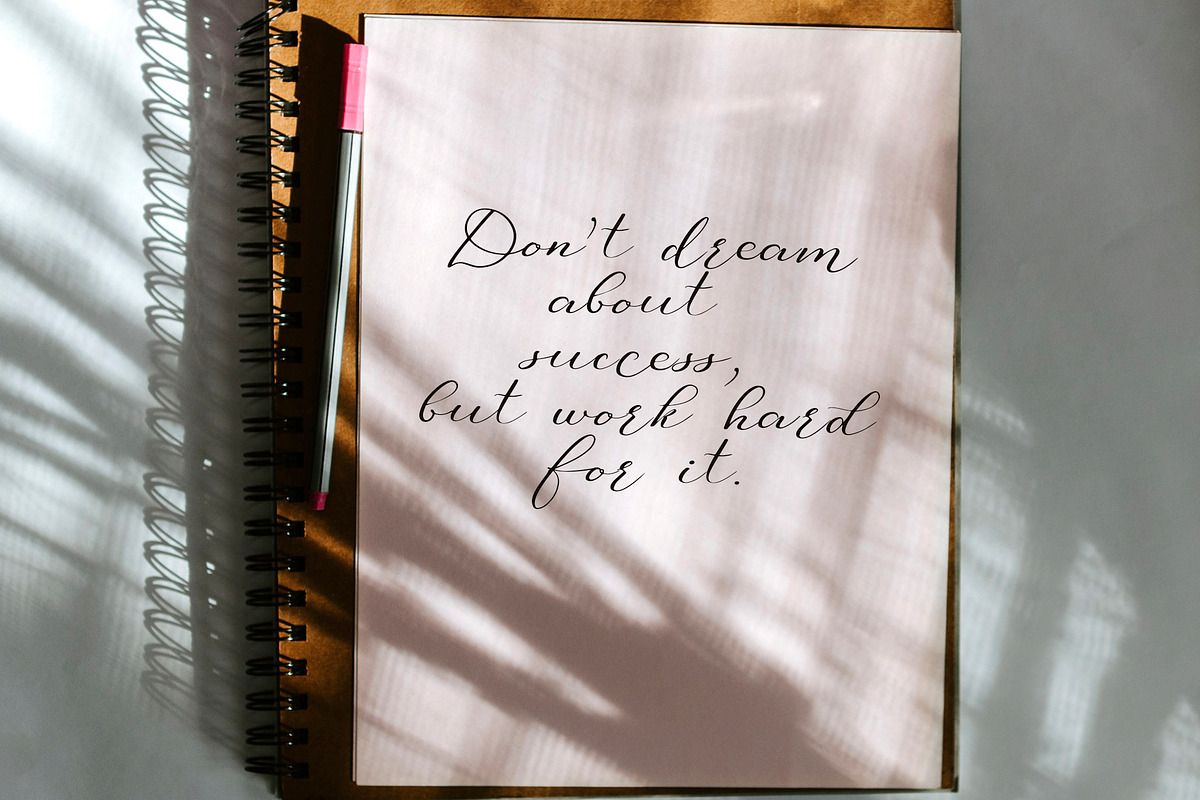 Don't dream
about
success,
but work hard
for it.